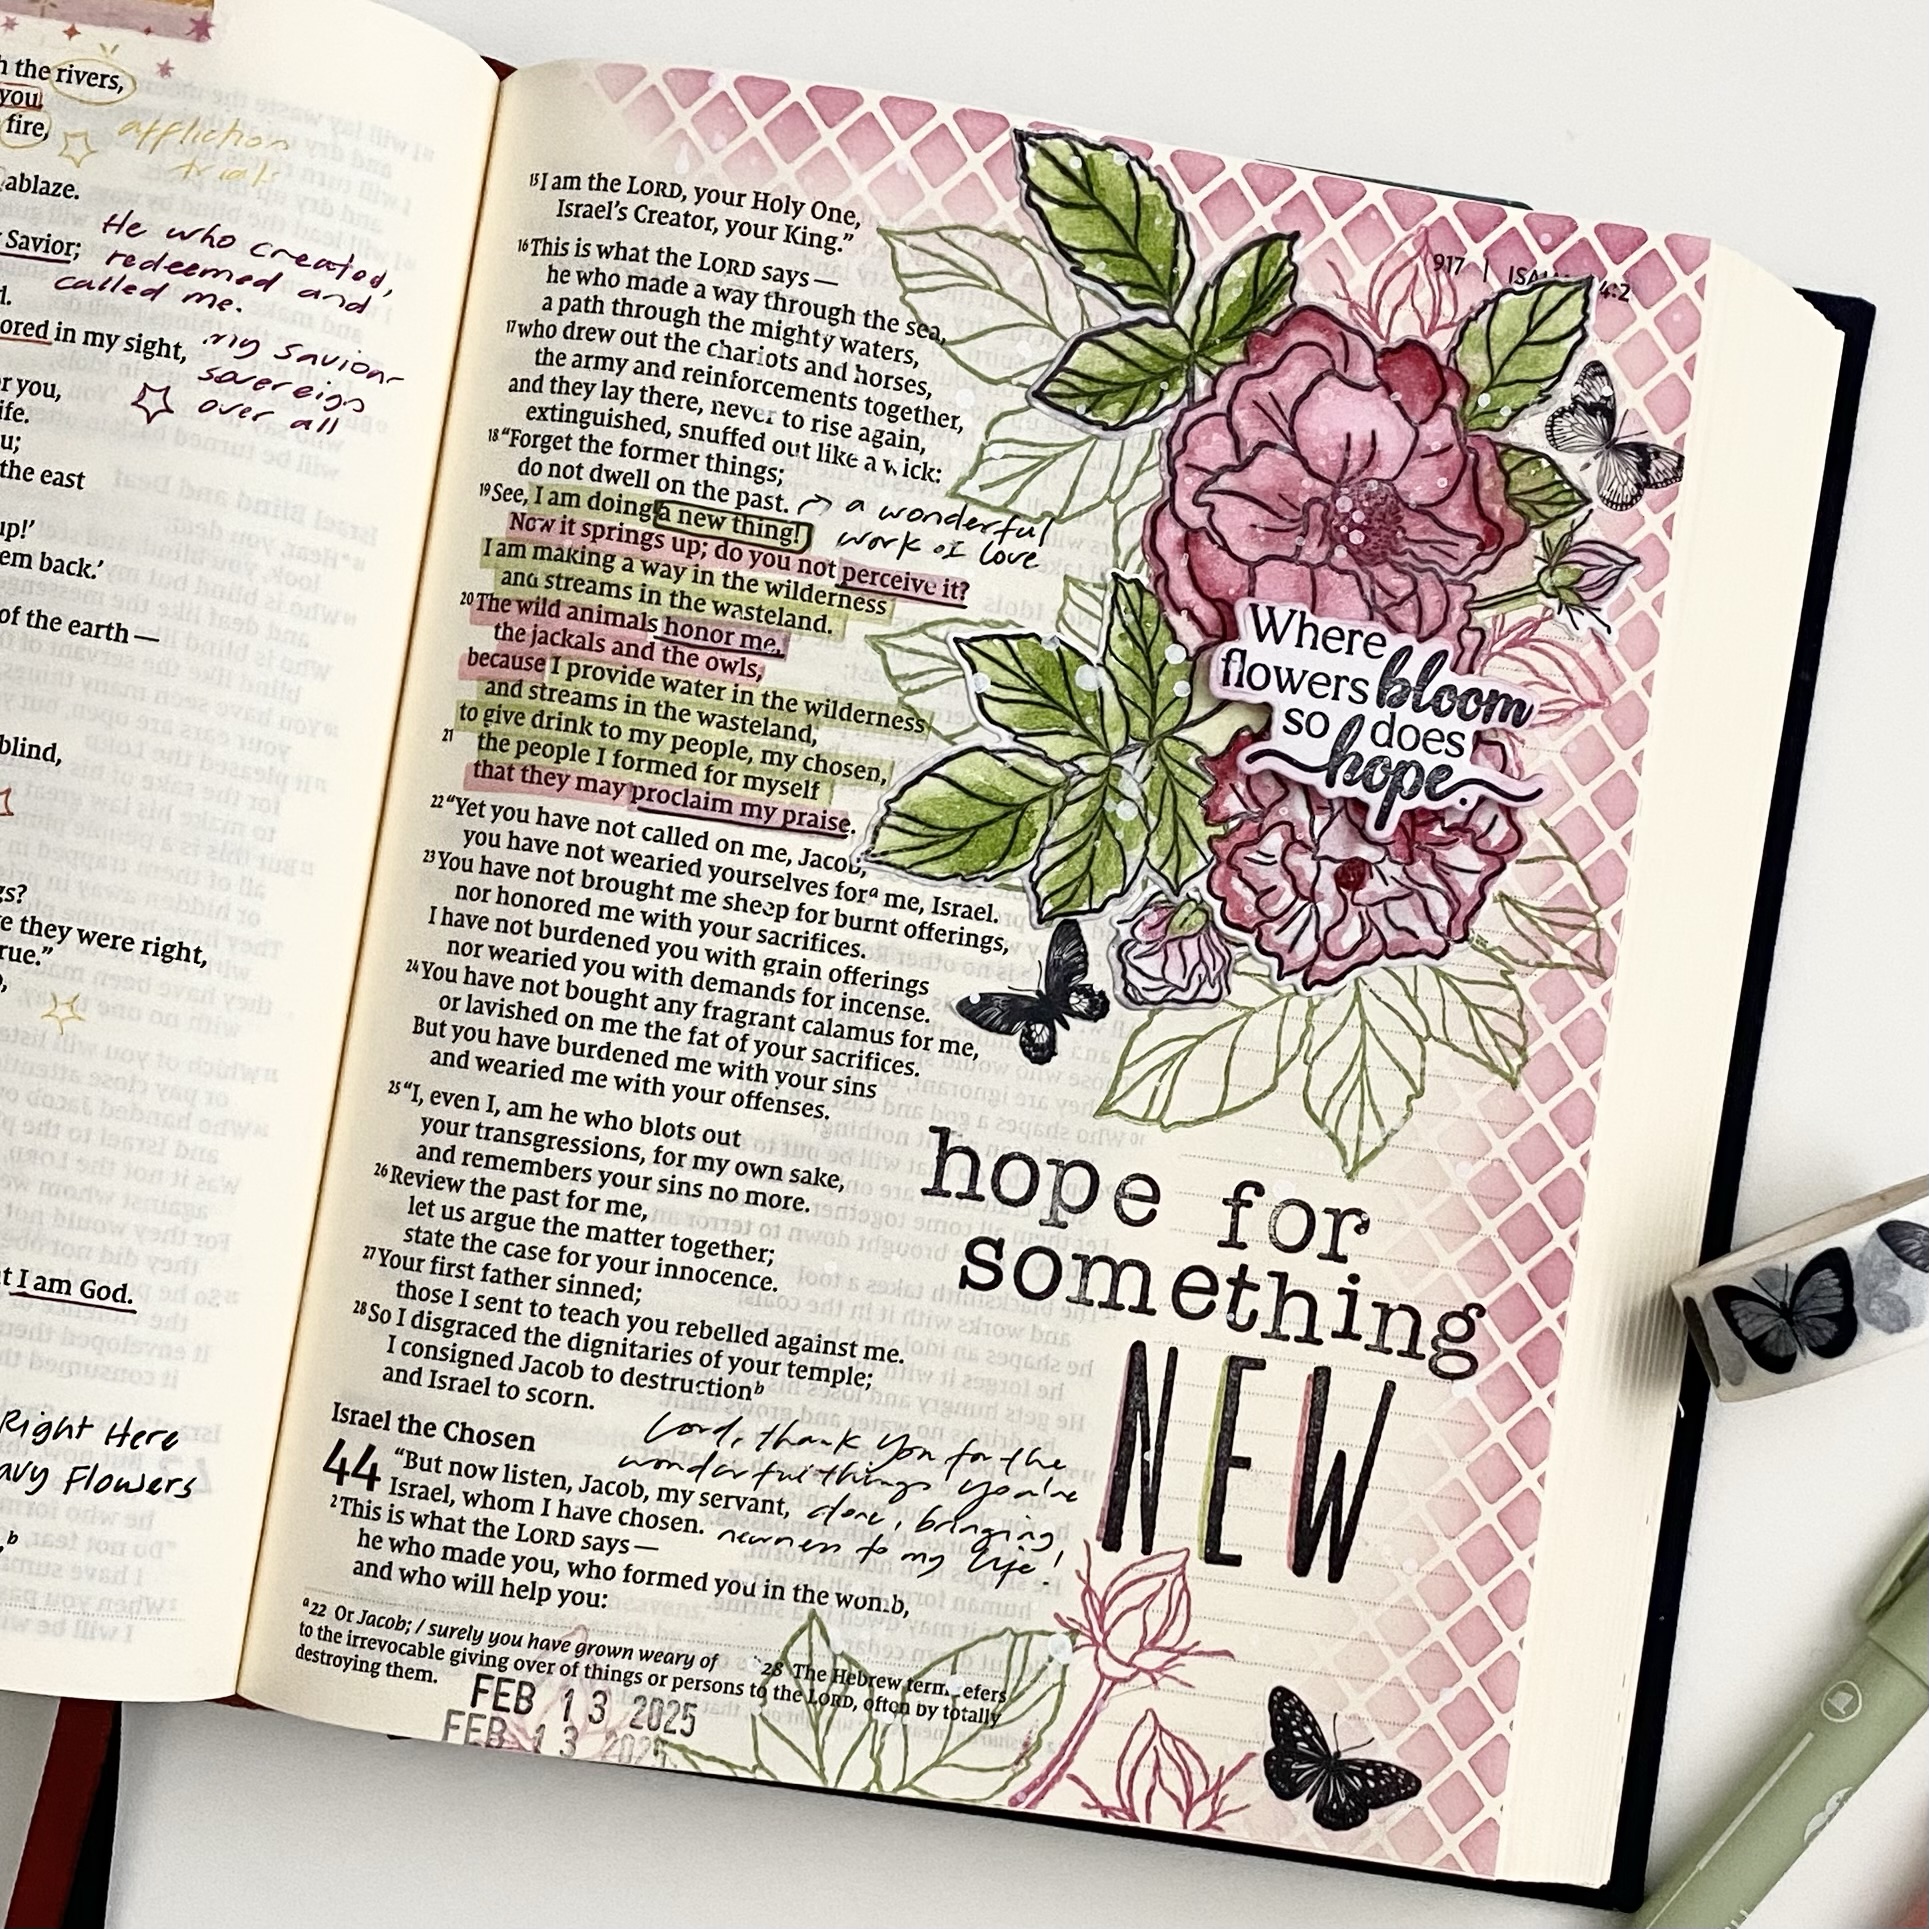 the rivers,
you
fire,
affliction
trials
ablaze.
He who created,
redeemed and
called me.
Savior;
ored in my sight,
my saviour
sovereign
over all
r you,
ife.
u;
the east
up!'
em back.'
of the earth —
blind,
gs?
e they were right,
rue."
I am God.
Right Here
avy Flowers
b
917 | ISA 4:2
15 I am the LORD, your Holy One,
Israel's Creator, your King."
16 This is what the LORD says —
he who made a way through the sea,
a path through the mighty waters,
17 who drew out the chariots and horses,
the army and reinforcements together,
and they lay there, never to rise again,
extinguished, snuffed out like a wick:
18 "Forget the former things;
do not dwell on the past.
19 See, I am doing a new thing!
a wonderful
work of love
Now it springs up; do you not perceive it?
I am making a way in the wilderness
and streams in the wasteland.
20 The wild animals honor me,
the jackals and the owls,
because I provide water in the wilderness
and streams in the wasteland,
to give drink to my people, my chosen,
21 the people I formed for myself
that they may proclaim my praise.
22 "Yet you have not called on me, Jacob,
you have not wearied yourselves for a me, Israel.
23 You have not brought me sheep for burnt offerings,
nor honored me with your sacrifices.
I have not burdened you with grain offerings
nor wearied you with demands for incense.
24 You have not bought any fragrant calamus for me,
or lavished on me the fat of your sacrifices.
But you have burdened me with your sins
and wearied me with your offenses.
25 "I, even I, am he who blots out
your transgressions, for my own sake,
and remembers your sins no more.
26 Review the past for me,
let us argue the matter together;
state the case for your innocence.
27 Your first father sinned;
those I sent to teach you rebelled against me.
28 So I disgraced the dignitaries of your temple;
I consigned Jacob to destruction b
and Israel to scorn.
Israel the Chosen
44 "But now listen, Jacob, my servant,
Israel, whom I have chosen.
2 This is what the LORD says —
he who made you, who formed you in the womb,
and who will help you:
Lord, thank you for the
wonderful things you've
done, bringing
newness to my life!
a 22 Or Jacob; / surely you have grown weary of
b 28 The Hebrew term refers
to the irrevocable giving over of things or persons to the LORD, often by totally
destroying them.
FEB 13 2025
FEB 13 2025
Where
flowers bloom
so does
hope.
hope for
something
NEW